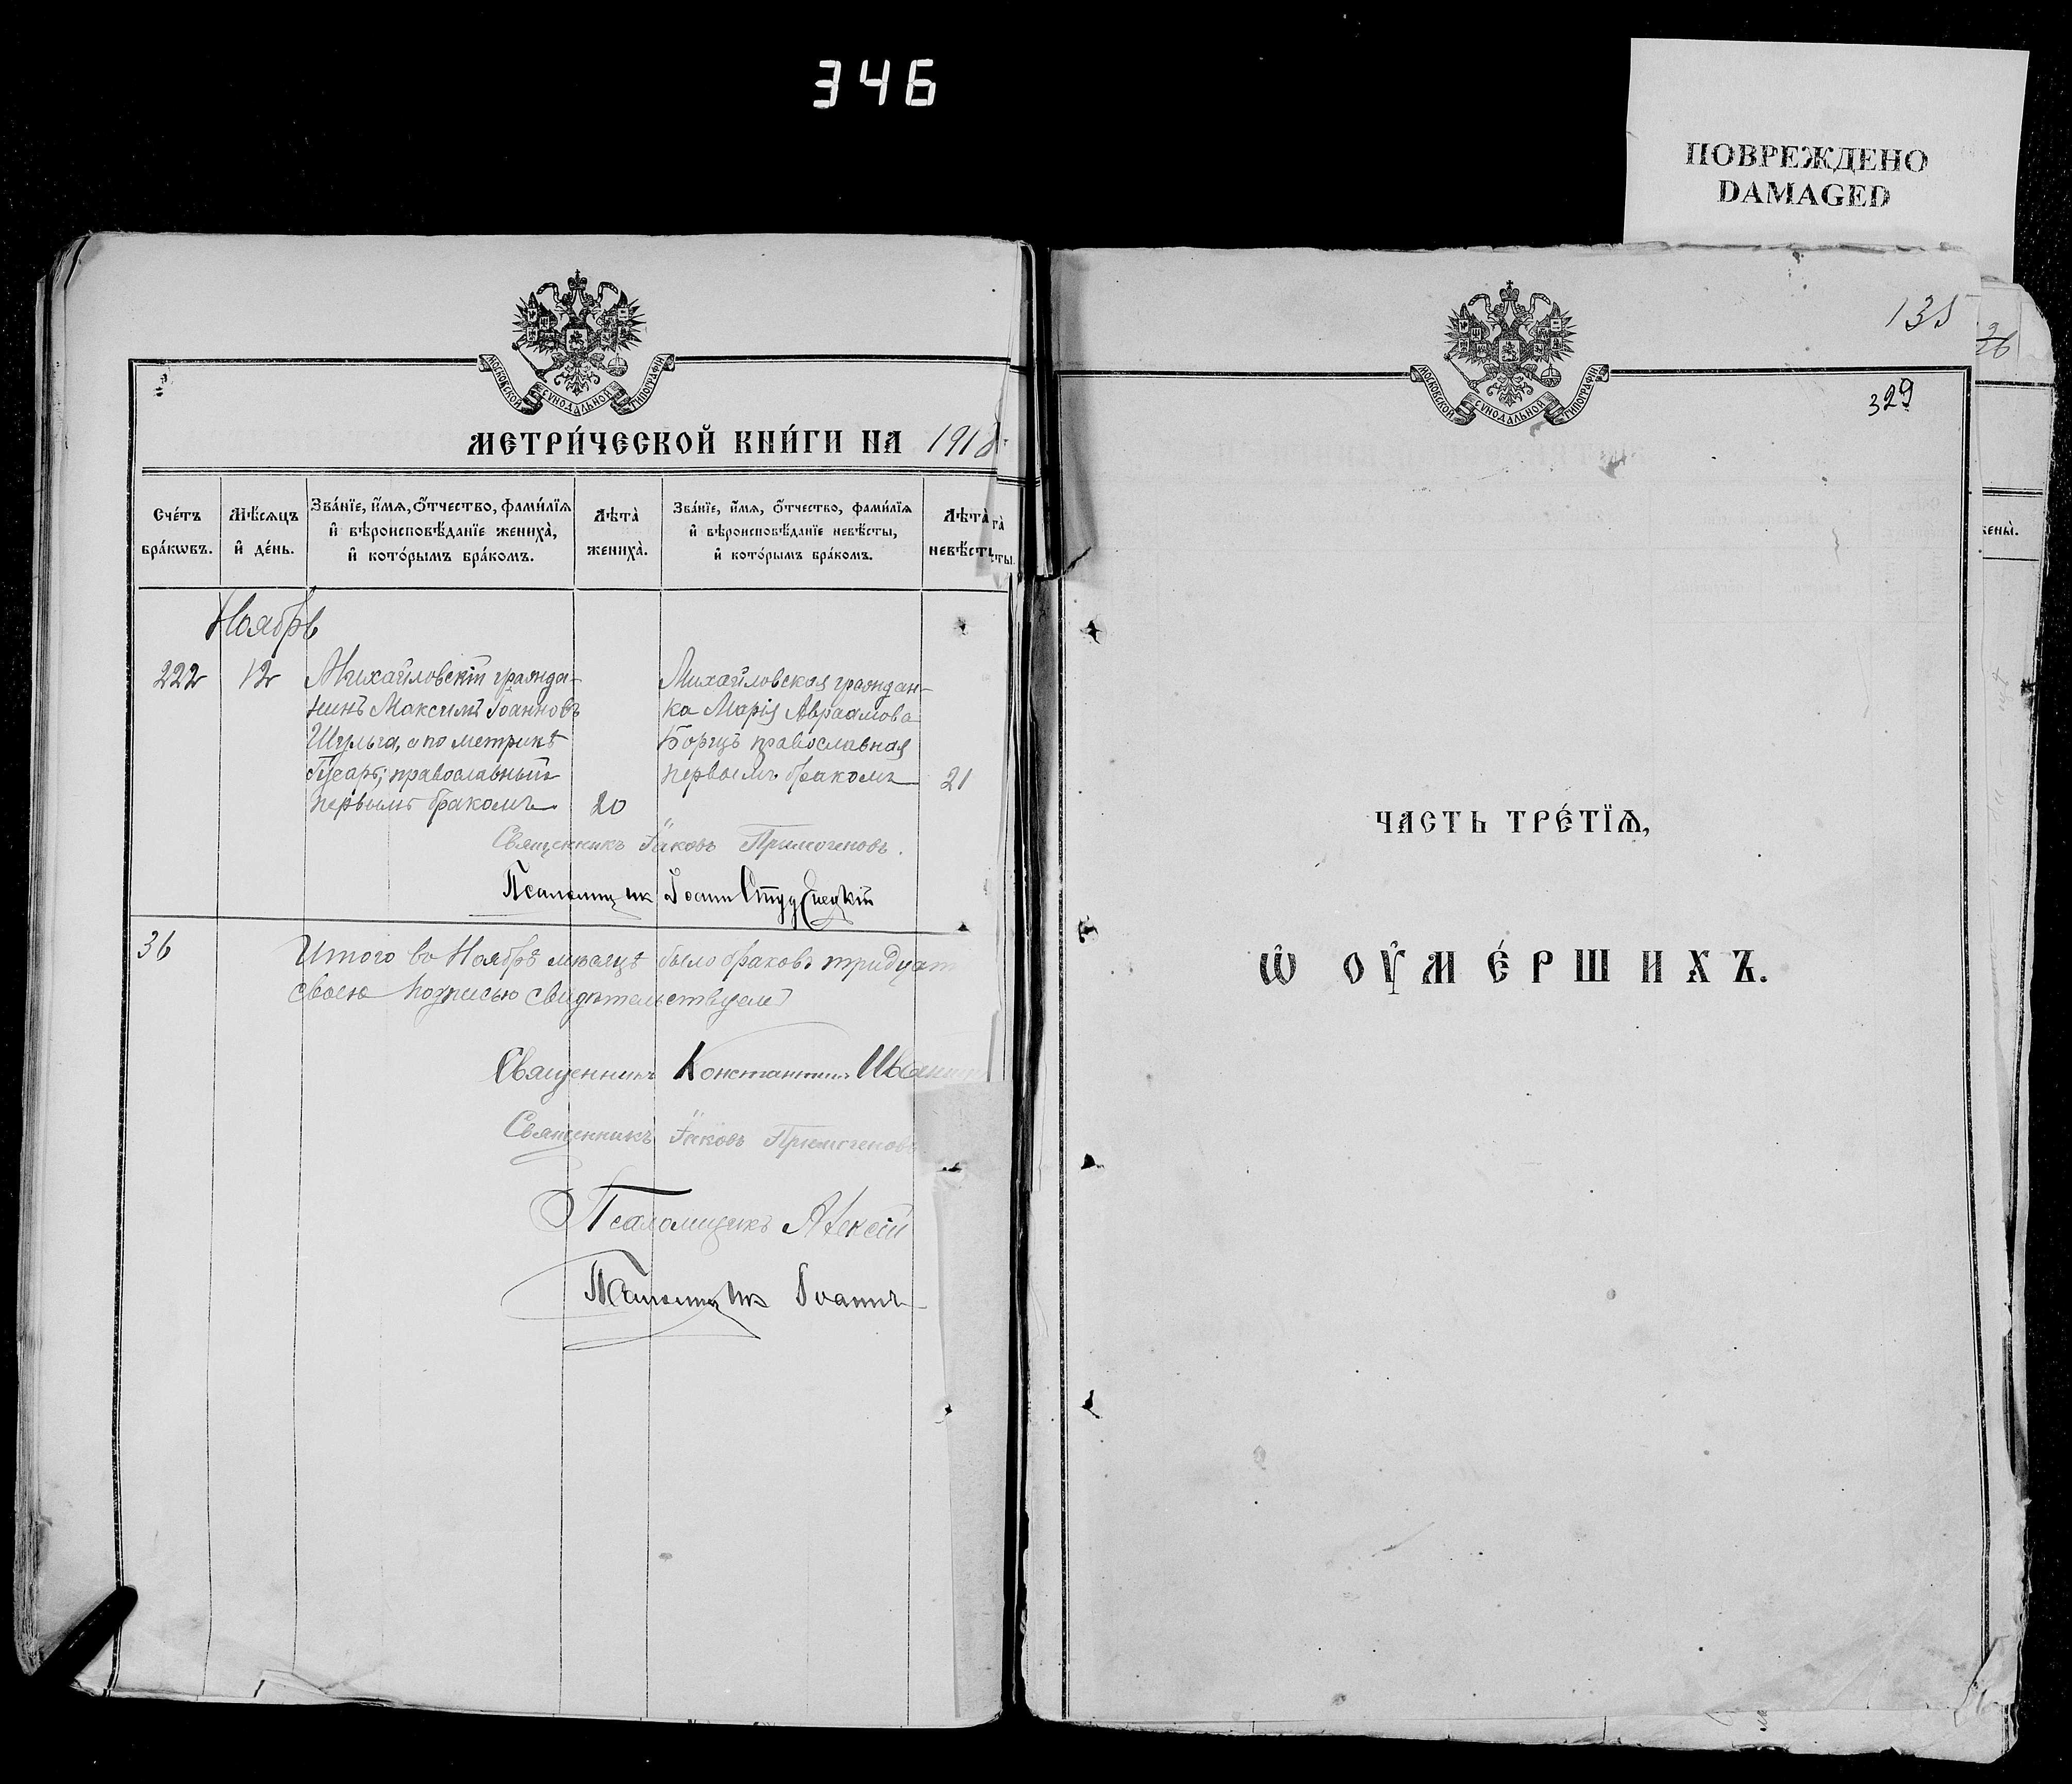 346
ПОВРЕЖДЕНО
DAMAGED
МОСКОВСКОЙ СѴНОДАЛЬНОЙ ТИПОГРАФІИ
МЕТРИ́ЧЕСКОЙ КНИ́ГИ НА 1918
Сче́тъ бра́кωвъ.
Мѣ́сяцъ и҆ де́нь.
Зва́нїе, и҆́мя, ѻ҆́тчество, фами́лїя и҆ вѣроисповѣ́данїе жениха̀, и҆ кото́рымъ бра́комъ.
Лѣта̀ жениха̀.
Зва́нїе, и҆́мя, ѻ҆́тчество, фами́лїя и҆ вѣроисповѣ́данїе невѣ́сты, и҆ кото́рымъ бра́комъ.
Лѣта̀ невѣ́сты
Ноябрь
222 12
Михайловскій гражда-
нинъ Максимъ Іоанновъ
Шульга, а по метрикѣ
Гусарь, православный
первымъ бракомъ
20
Михайловская граждан-
ка Марія Авраамова
Борецъ православная
первымъ бракомъ
21
Священникъ Іаковъ Примогеновъ.
Псаломщик Іоанн
36
Итого во Ноябрѣ мѣсяцѣ было браковъ тридцат
своею подписью свидѣтельствуем
Священникъ Константинъ
Священникъ Іаковъ Примогеновъ
Псаломщикъ Алексій
Псаломщик Іоаннъ
МОСКОВСКОЙ СѴНОДАЛЬНОЙ ТИПОГРАФІИ
135
26
329
жены̀.
ЧАСТЬ ТРЕ́ТЇѦ,
Ѡ҆ ОУ҆МЕ́РШИХЪ.